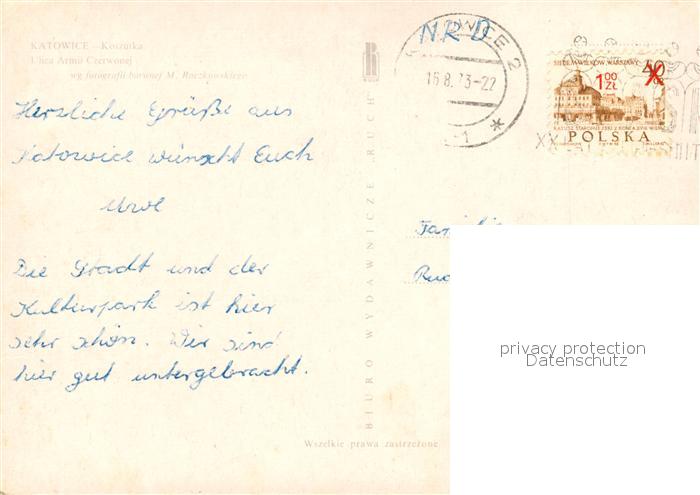 KATOWICE – Koszutka
Ulica Armii Czerwonej
wg fotografii barwnej M. Raczkowskiego
Herzliche Grüße aus
Katowice wünscht Euch
Uwe
Die Stadt und der
Kulturpark ist hier
sehr schön. Wir sind
hier gut untergebracht.
BIURO WYDAWNICZE RUCH
Wszelkie prawa zastrzeżone
NRD
OWICE 2
16.8.73-22
1 *
SIEDEM WIEKÓW WARSZAWY 40
1 00 ZŁ
POLSKA
XX
Familie
privacy protection
Datenschutz